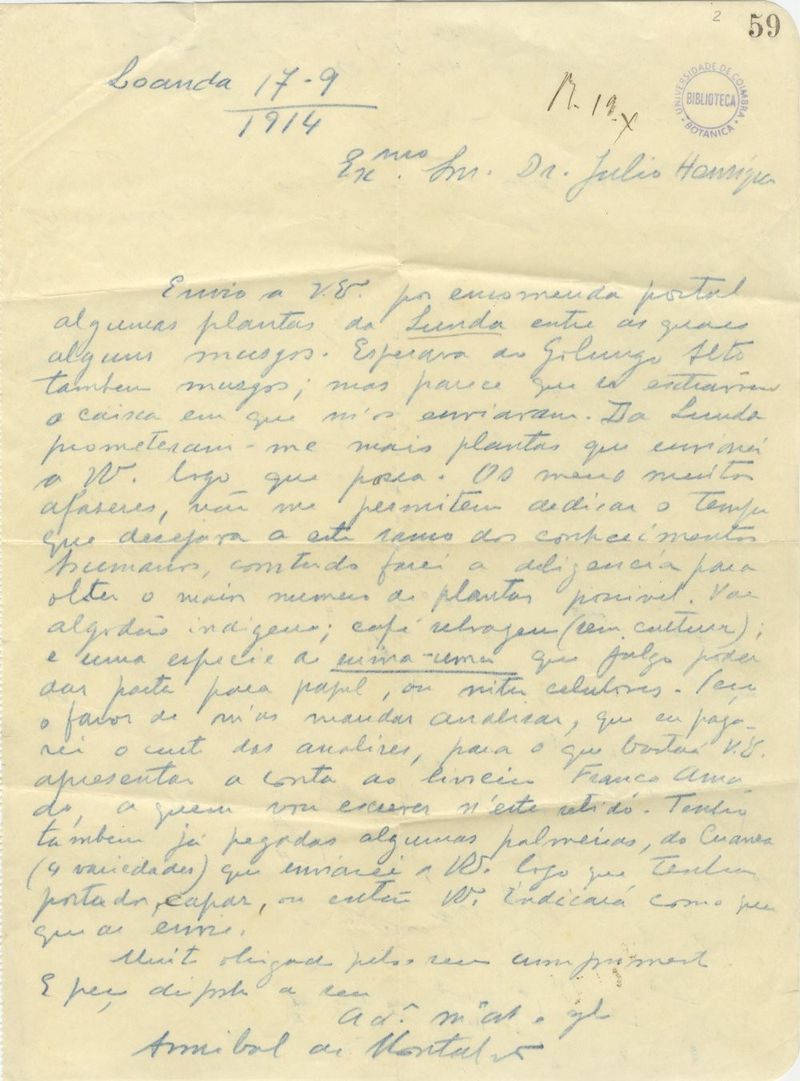 2
59
UNIVERSIDADE DE COIMBRA
BIBLIOTECA
BOTANICA
Loanda 17-9
1914
R. 19.x
Exmo. Snr. Dr. Julio Henriques
Envio a V.E. por encomenda postal
algumas plantas da Lunda entre as quaes
alguns musgos. Esperava do Golungo Alto
tambem musgos; mas parece que se extraviou
a caixa em que m'os enviaram. Da Lunda
prometeram-me mais plantas que enviarei
a VE. logo que possa. Os meus muitos
afazeres, não me permitem dedicar o tempo
que desejava a este ramo dos conhecimentos
humanos, comtudo farei a diligencia para
obter o maior numero de plantas possivel. Vae
algodão indigena; café selvagem (sem cultura);
e uma especie de suma-uma que julgo poder
dar pasta para papel, ou nitro celuloses.
o favor de m'as mandar analisar, que eu paga-
rei o custo das analises, para o que bastará V.E.
apresentar a conta ao livreiro Franco Ama
do, a quem vou escrever n'este sentido. Tenho
tambem já pegadas algumas palmeiras, do Cuanza
(4 variedades) que enviarei a VE. logo que tenha
portador capaz, ou então VE. indicará como quer
que as envie.
Muito obrigado pelos seus cumprimentos
E peço disponha do seu
Annibal de Montalvão